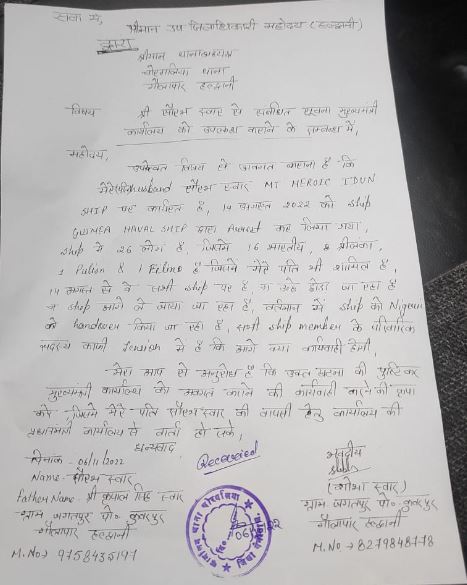 सेवा में
श्रीमान उप जिलाधिकारी महोदय (हल्द्वानी)
द्वारा
श्रीमान थानाध्यक्ष
चोरगलिया थाना
गौलापार हल्द्वानी
विषय श्री सौरभ स्वार से संबंधित सूचना मुख्यमंत्री
कार्यालय को उपलब्ध कराने के सम्बन्ध में,
महोदय,
उपरोक्त विषय से अवगत कराना है कि
मेरे husband सौरभ स्वार MT HEROIC IDUN
SHIP पर कार्यरत है, 14 अगस्त 2022 को ship
GUINEA NAVAL SHIP द्वारा Arrest कर लिया गया,
ship में 26 लोग है, जिसमे 16 भारतीय, 8 श्रीलंका,
1 Polish & 1 Filino है जिसमे मेरे पति भी शामिल है,
14 अगस्त से वे सभी ship पर है, न उन्हे छोडा जा रहा है
न ship आगे ले जाया जा रहा है, वर्तमान में ship को Nigeria
को handover किया जा रहा है, सभी ship member के पारिवारिक
सदस्य काफी में है कि आगे क्या कार्यवाही होगी,
मेरा आप से अनुरोध है कि उक्त घटना की पुष्टि कर
मुख्यमंत्री कार्यालय को अवगत कराने की कार्यवाही करने की कृपा
करे जिससे मेरे पति सौरभ स्वार की वापसी हेतु कार्यालय की
प्रधानमंत्री कार्यालय से वार्ता हो सके,
धन्यवाद
दिनांक - 06/11/2022
Received
भवदीय
Name - सौरभ स्वार
(शोभा स्वार)
Father Name - श्री कुंदन सिंह स्वार
ग्राम जगतपुर पो० कुंवरपुर
गौलापार हल्द्वानी
M. No → 9758435197
ग्राम जगतपुर पो० कुंवरपुर
गौलापार हल्द्वानी
M. No → 8279848778